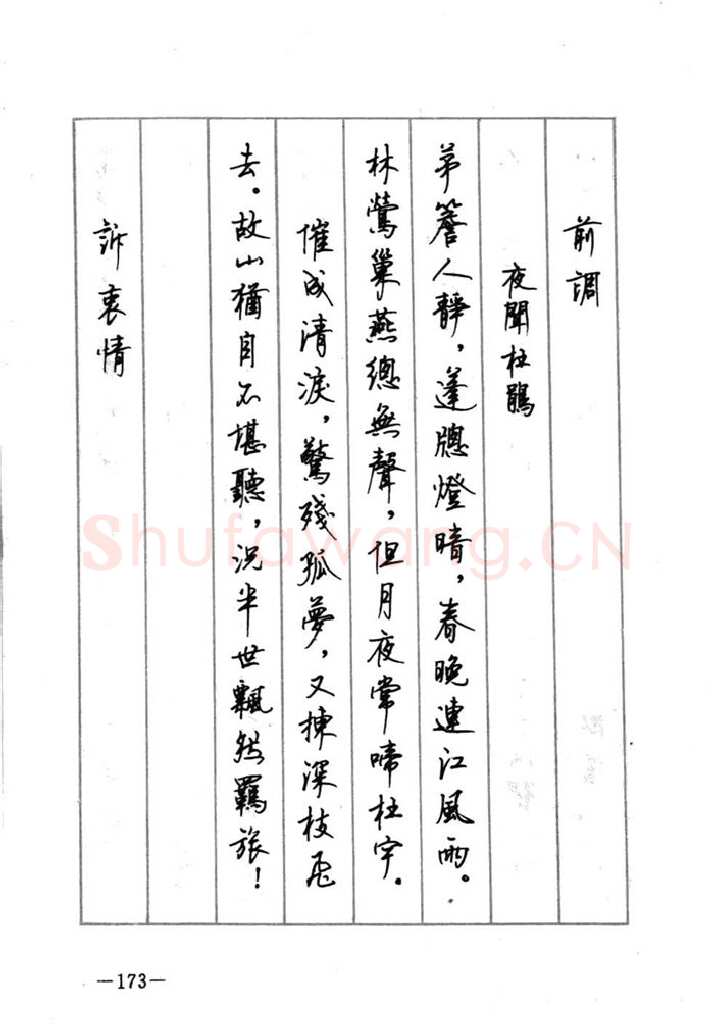 前調
夜聞杜鵑
茅簷人靜，蓬牕燈暗，春晚連江風雨。
林鶯巢燕總無聲，但月夜常啼杜宇。
催成清淚，驚殘孤夢，又揀深枝飛
去。故山猶自不堪聽，況半世飄然羈旅！
訴衷情
—173—
Shufawang.CN